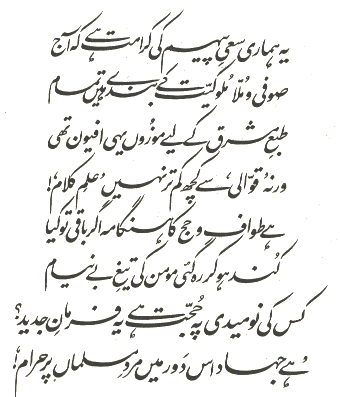 یہ ہماری سعیِ پیہم کی کرامت ہے کہ آج
صوفی و مُلّا مُلوکیّت کے بندے ہیں تمام
طبعِ مشرق کے لیے موزُوں یہی افیون تھی
ورنہ ’قوّالی‘ سے کچھ کم تر نہیں ’علمِ کلام‘!
ہے طواف و حج کا ہنگامہ اگر باقی تو کیا
کُند ہو کر رہ گئی مومن کی تیغِ بے نیام
کس کی نومیدی پہ حُجّت ہے یہ فرمانِ جدید؟
’ہے جہاد اس دَور میں مردِ مسلماں پر حرام‘!